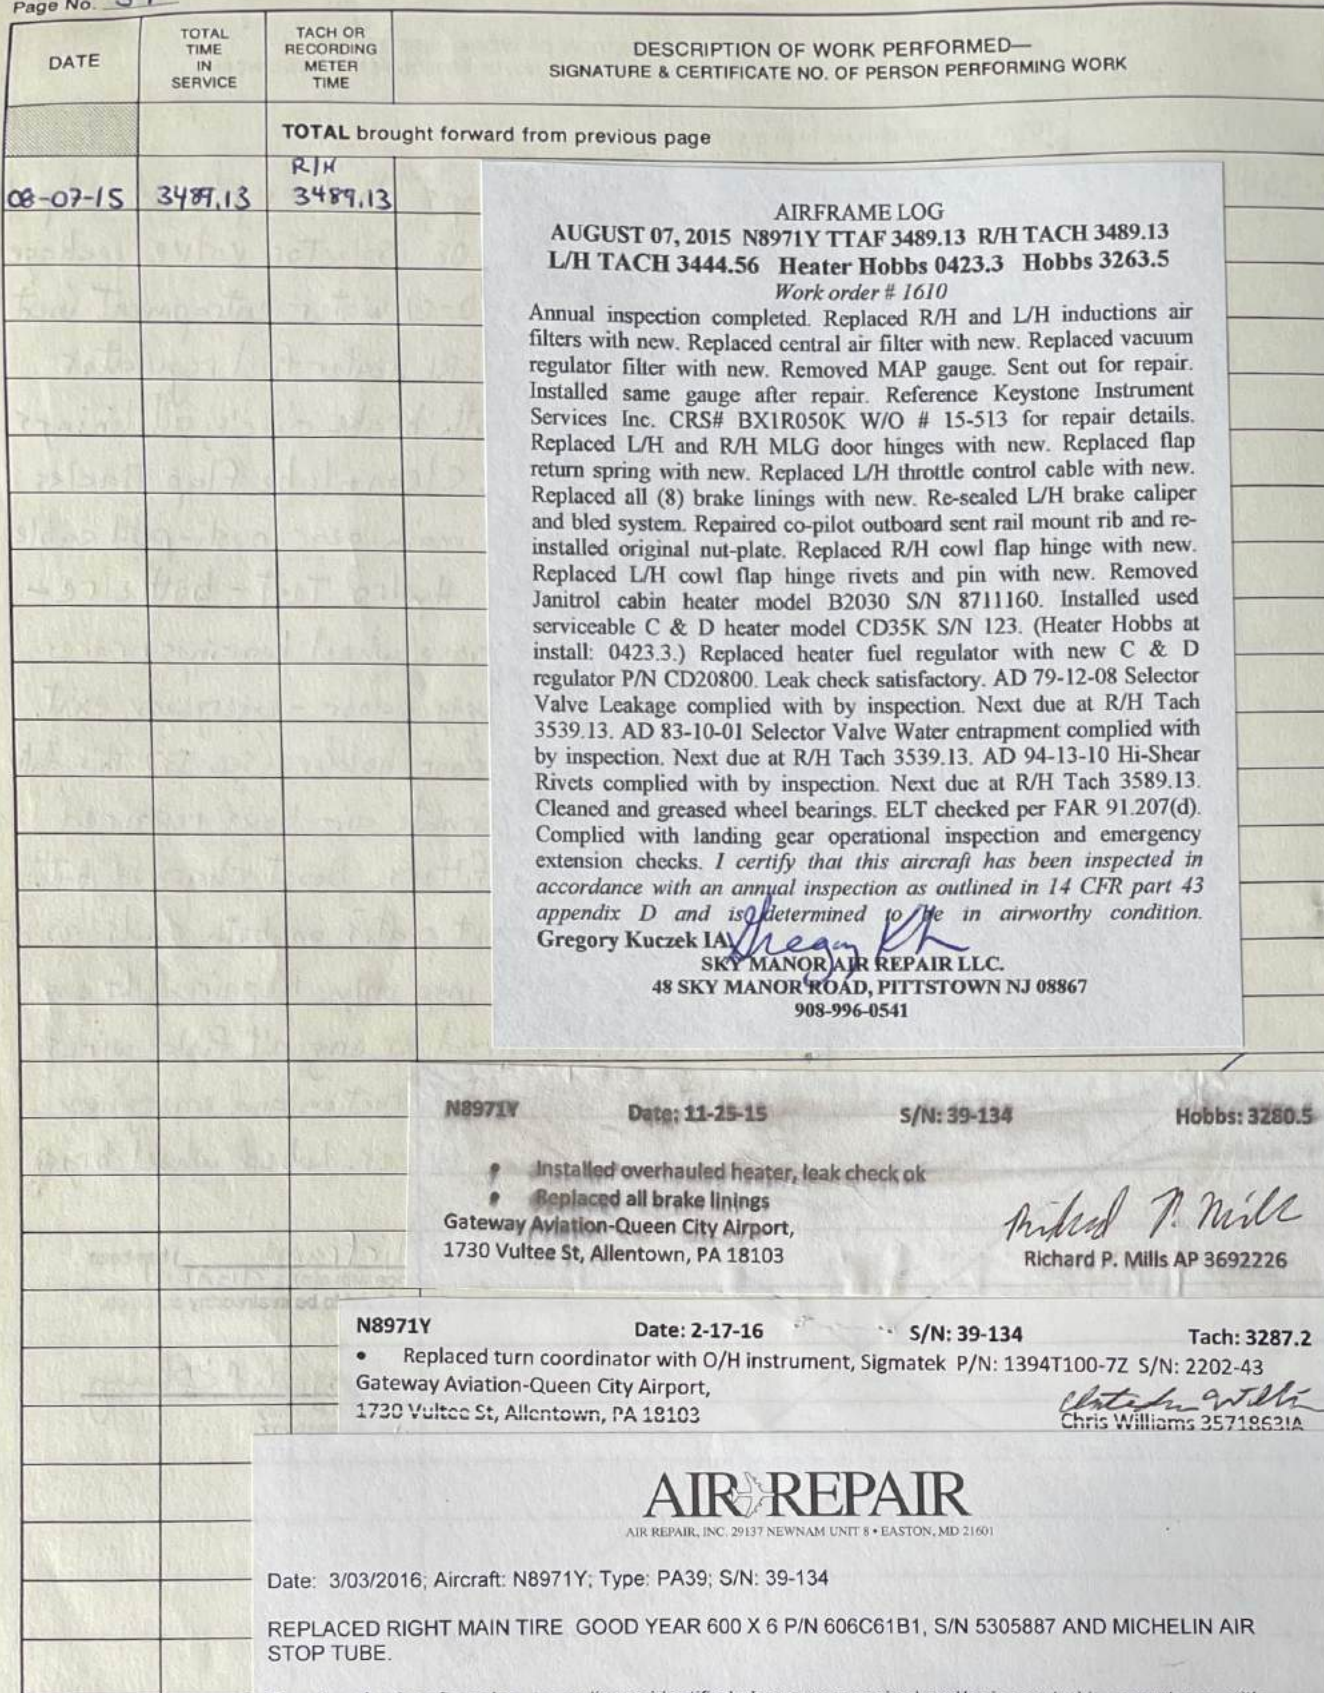 Page No.
DATE
TOTAL
TIME
IN
SERVICE
TACH OR
RECORDING
METER
TIME
DESCRIPTION OF WORK PERFORMED—
SIGNATURE & CERTIFICATE NO. OF PERSON PERFORMING WORK
TOTAL brought forward from previous page
R/H
08-07-15 3489.13 3489.13
AIRFRAME LOG
AUGUST 07, 2015 N8971Y TTAF 3489.13 R/H TACH 3489.13
L/H TACH 3444.56 Heater Hobbs 0423.3 Hobbs 3263.5
Work order # 1610
Annual inspection completed. Replaced R/H and L/H inductions air
filters with new. Replaced central air filter with new. Replaced vacuum
regulator filter with new. Removed MAP gauge. Sent out for repair.
Installed same gauge after repair. Reference Keystone Instrument
Services Inc. CRS# BX1R050K W/O # 15-513 for repair details.
Replaced L/H and R/H MLG door hinges with new. Replaced flap
return spring with new. Replaced L/H throttle control cable with new.
Replaced all (8) brake linings with new. Re-sealed L/H brake caliper
and bled system. Repaired co-pilot outboard sent rail mount rib and re-
installed original nut-plate. Replaced R/H cowl flap hinge with new.
Replaced L/H cowl flap hinge rivets and pin with new. Removed
Janitrol cabin heater model B2030 S/N 8711160. Installed used
serviceable C & D heater model CD35K S/N 123. (Heater Hobbs at
install: 0423.3.) Replaced heater fuel regulator with new C & D
regulator P/N CD20800. Leak check satisfactory. AD 79-12-08 Selector
Valve Leakage complied with by inspection. Next due at R/H Tach
3539.13. AD 83-10-01 Selector Valve Water entrapment complied with
by inspection. Next due at R/H Tach 3539.13. AD 94-13-10 Hi-Shear
Rivets complied with by inspection. Next due at R/H Tach 3589.13.
Cleaned and greased wheel bearings. ELT checked per FAR 91.207(d).
Complied with landing gear operational inspection and emergency
extension checks. I certify that this aircraft has been inspected in
accordance with an annual inspection as outlined in 14 CFR part 43
appendix D and is determined to be in airworthy condition.
Gregory Kuczek IA
SKY MANOR AIR REPAIR LLC.
48 SKY MANOR ROAD, PITTSTOWN NJ 08867
908-996-0541
N8971Y Date: 11-25-15 S/N: 39-134 Hobbs: 3280.5
• Installed overhauled heater, leak check ok
• Replaced all brake linings
Gateway Aviation-Queen City Airport,
1730 Vultee St, Allentown, PA 18103
Richard P. Mills
Richard P. Mills AP 3692226
N8971Y Date: 2-17-16 S/N: 39-134 Tach: 3287.2
• Replaced turn coordinator with O/H instrument, Sigmatek P/N: 1394T100-7Z S/N: 2202-43
Gateway Aviation-Queen City Airport,
1730 Vultee St, Allentown, PA 18103
Chris Williams 3571863IA
AIR REPAIR
AIR REPAIR, INC. 29137 NEWNAM UNIT 8 • EASTON, MD 21601
Date: 3/03/2016; Aircraft: N8971Y; Type: PA39; S/N: 39-134
REPLACED RIGHT MAIN TIRE GOOD YEAR 600 X 6 P/N 606C61B1, S/N 5305887 AND MICHELIN AIR
STOP TUBE.